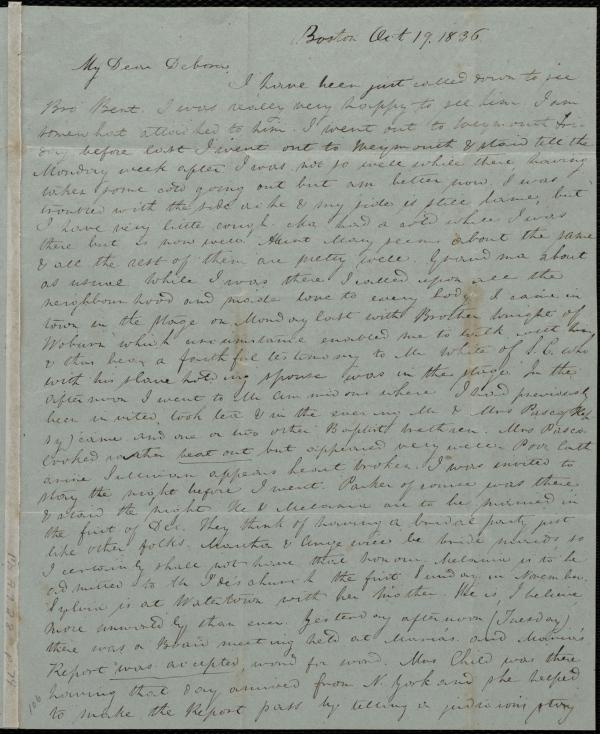 Boston Oct 19. 1836
My Dear Debora,
I have been just called down to see
Bro Bent. I was really very happy to see him. I am
somewhat attached to him. I went out to Weymouth
day before last I went out to Weymouth & staid till the
Monday week after I was not so well while there having
taken some cold going out but am better now. I was
troubled with the side ache & my side is still lame, but
I have very little cough. had a cold while I was
there but is now well. Aunt Mary seems about the same
& all the rest of them are pretty well. Grandma about
as usual. While I was there I called upon all the
neighbourhood and made love to every body. I came in
town in the stage on Monday last with Brother Knight of
Woburn which circumstance enabled me to talk with him
& thus bear a faithful testimony to Mr White of S.C. who
with his slave holding spouse was in the stage. In the
afternoon I went to Mr Cummings where I had previously
been invited, took tea & in the evening Mr & Mrs Pasco
came and one or two other Baptist brethren. Mrs Pasco
looked rather beat out but appeared very well. Poor Cath
arine Sullivan appears heart broken. I was invited to
stay the night before I went. Parker of course was there
& staid the night. He & Melania are to be married in
the first of Dec. They think of having a bridal party just
like other folks. Martha & Ange will be bride maids so
I certainly shall not have that honour. Melania is to be
admitted to the church the first Sunday in November.
Sylvia is at Watertown with her Mother. He is, I believe
more unworldly than ever. Yesterday afternoon (Tuesday)
there was a Board meeting held at Marias. and Marias
Report was accepted, word for word. Mrs Child was there
having that day arrived from N. York and she helped
to make the Report pass by telling a judicious story